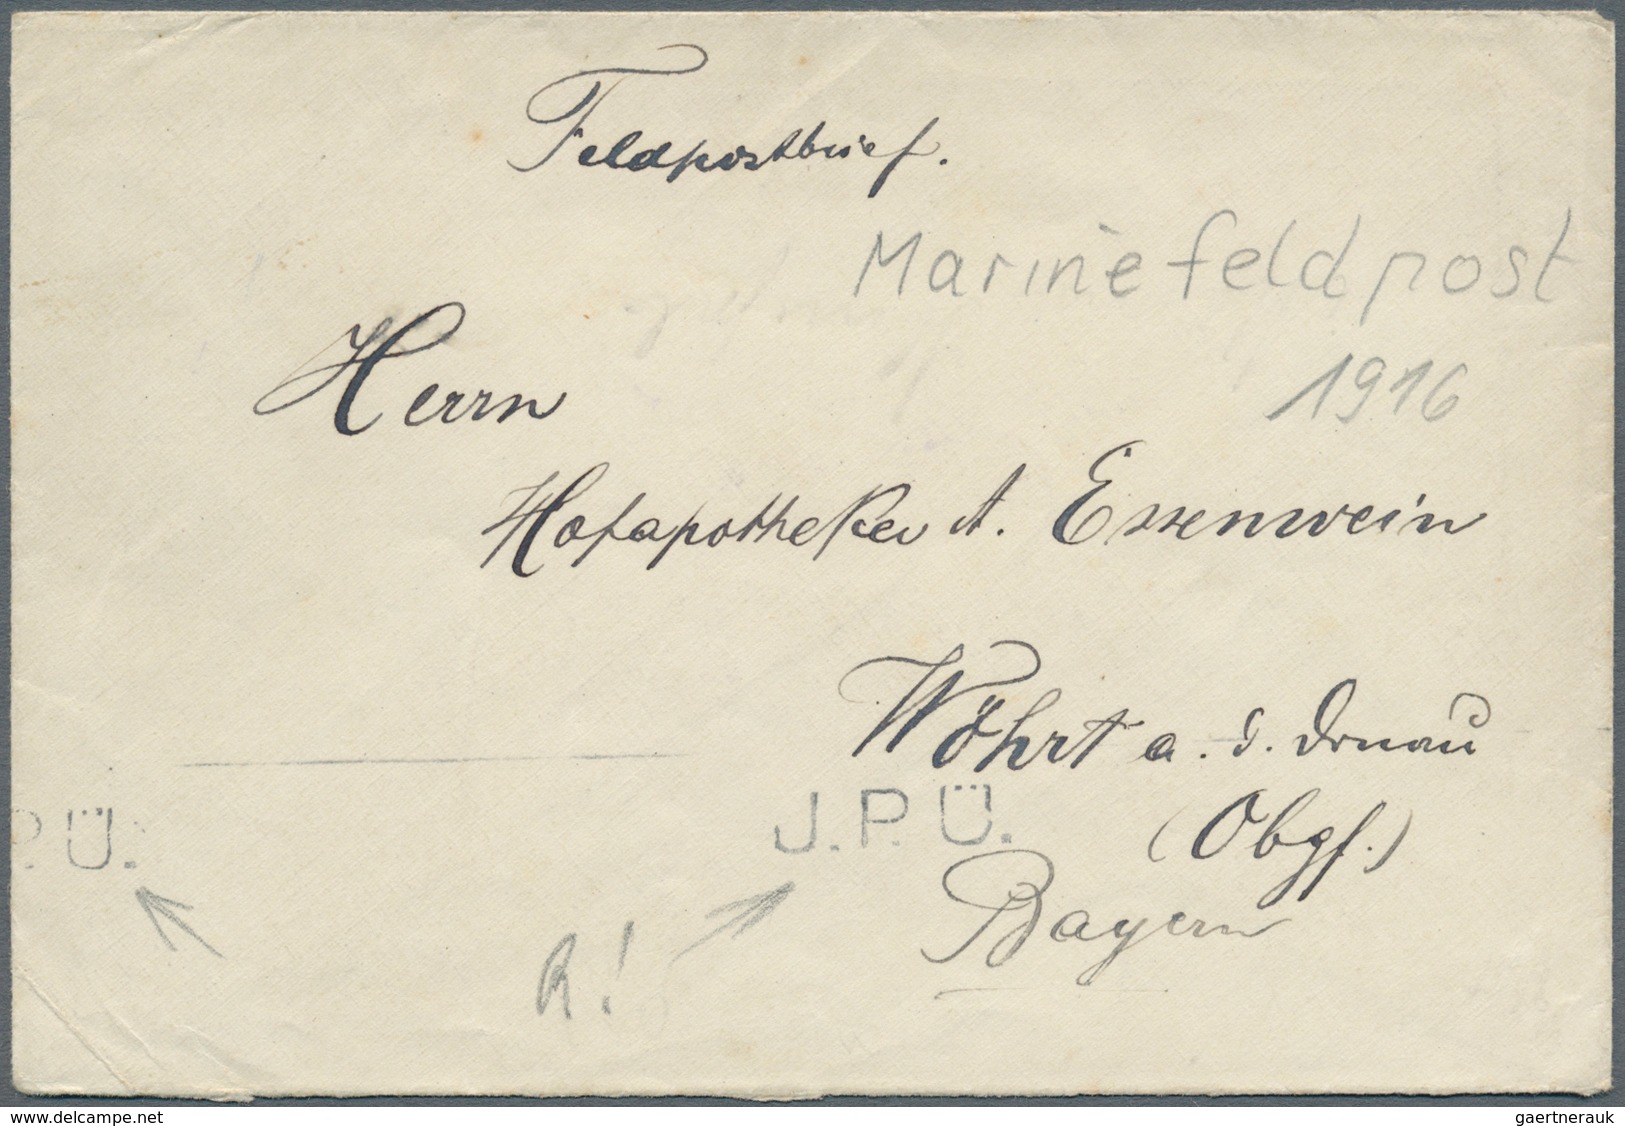 Feldpostbrief.
Marinefeldpost
1916
Herrn
Hofapotheker A. Essenwein
Wöhrt a. d. Donau
J.P.Ü.
P.Ü.
(Obpf.)
Bayern
R!
the.delcampe.net
gaertnerauk